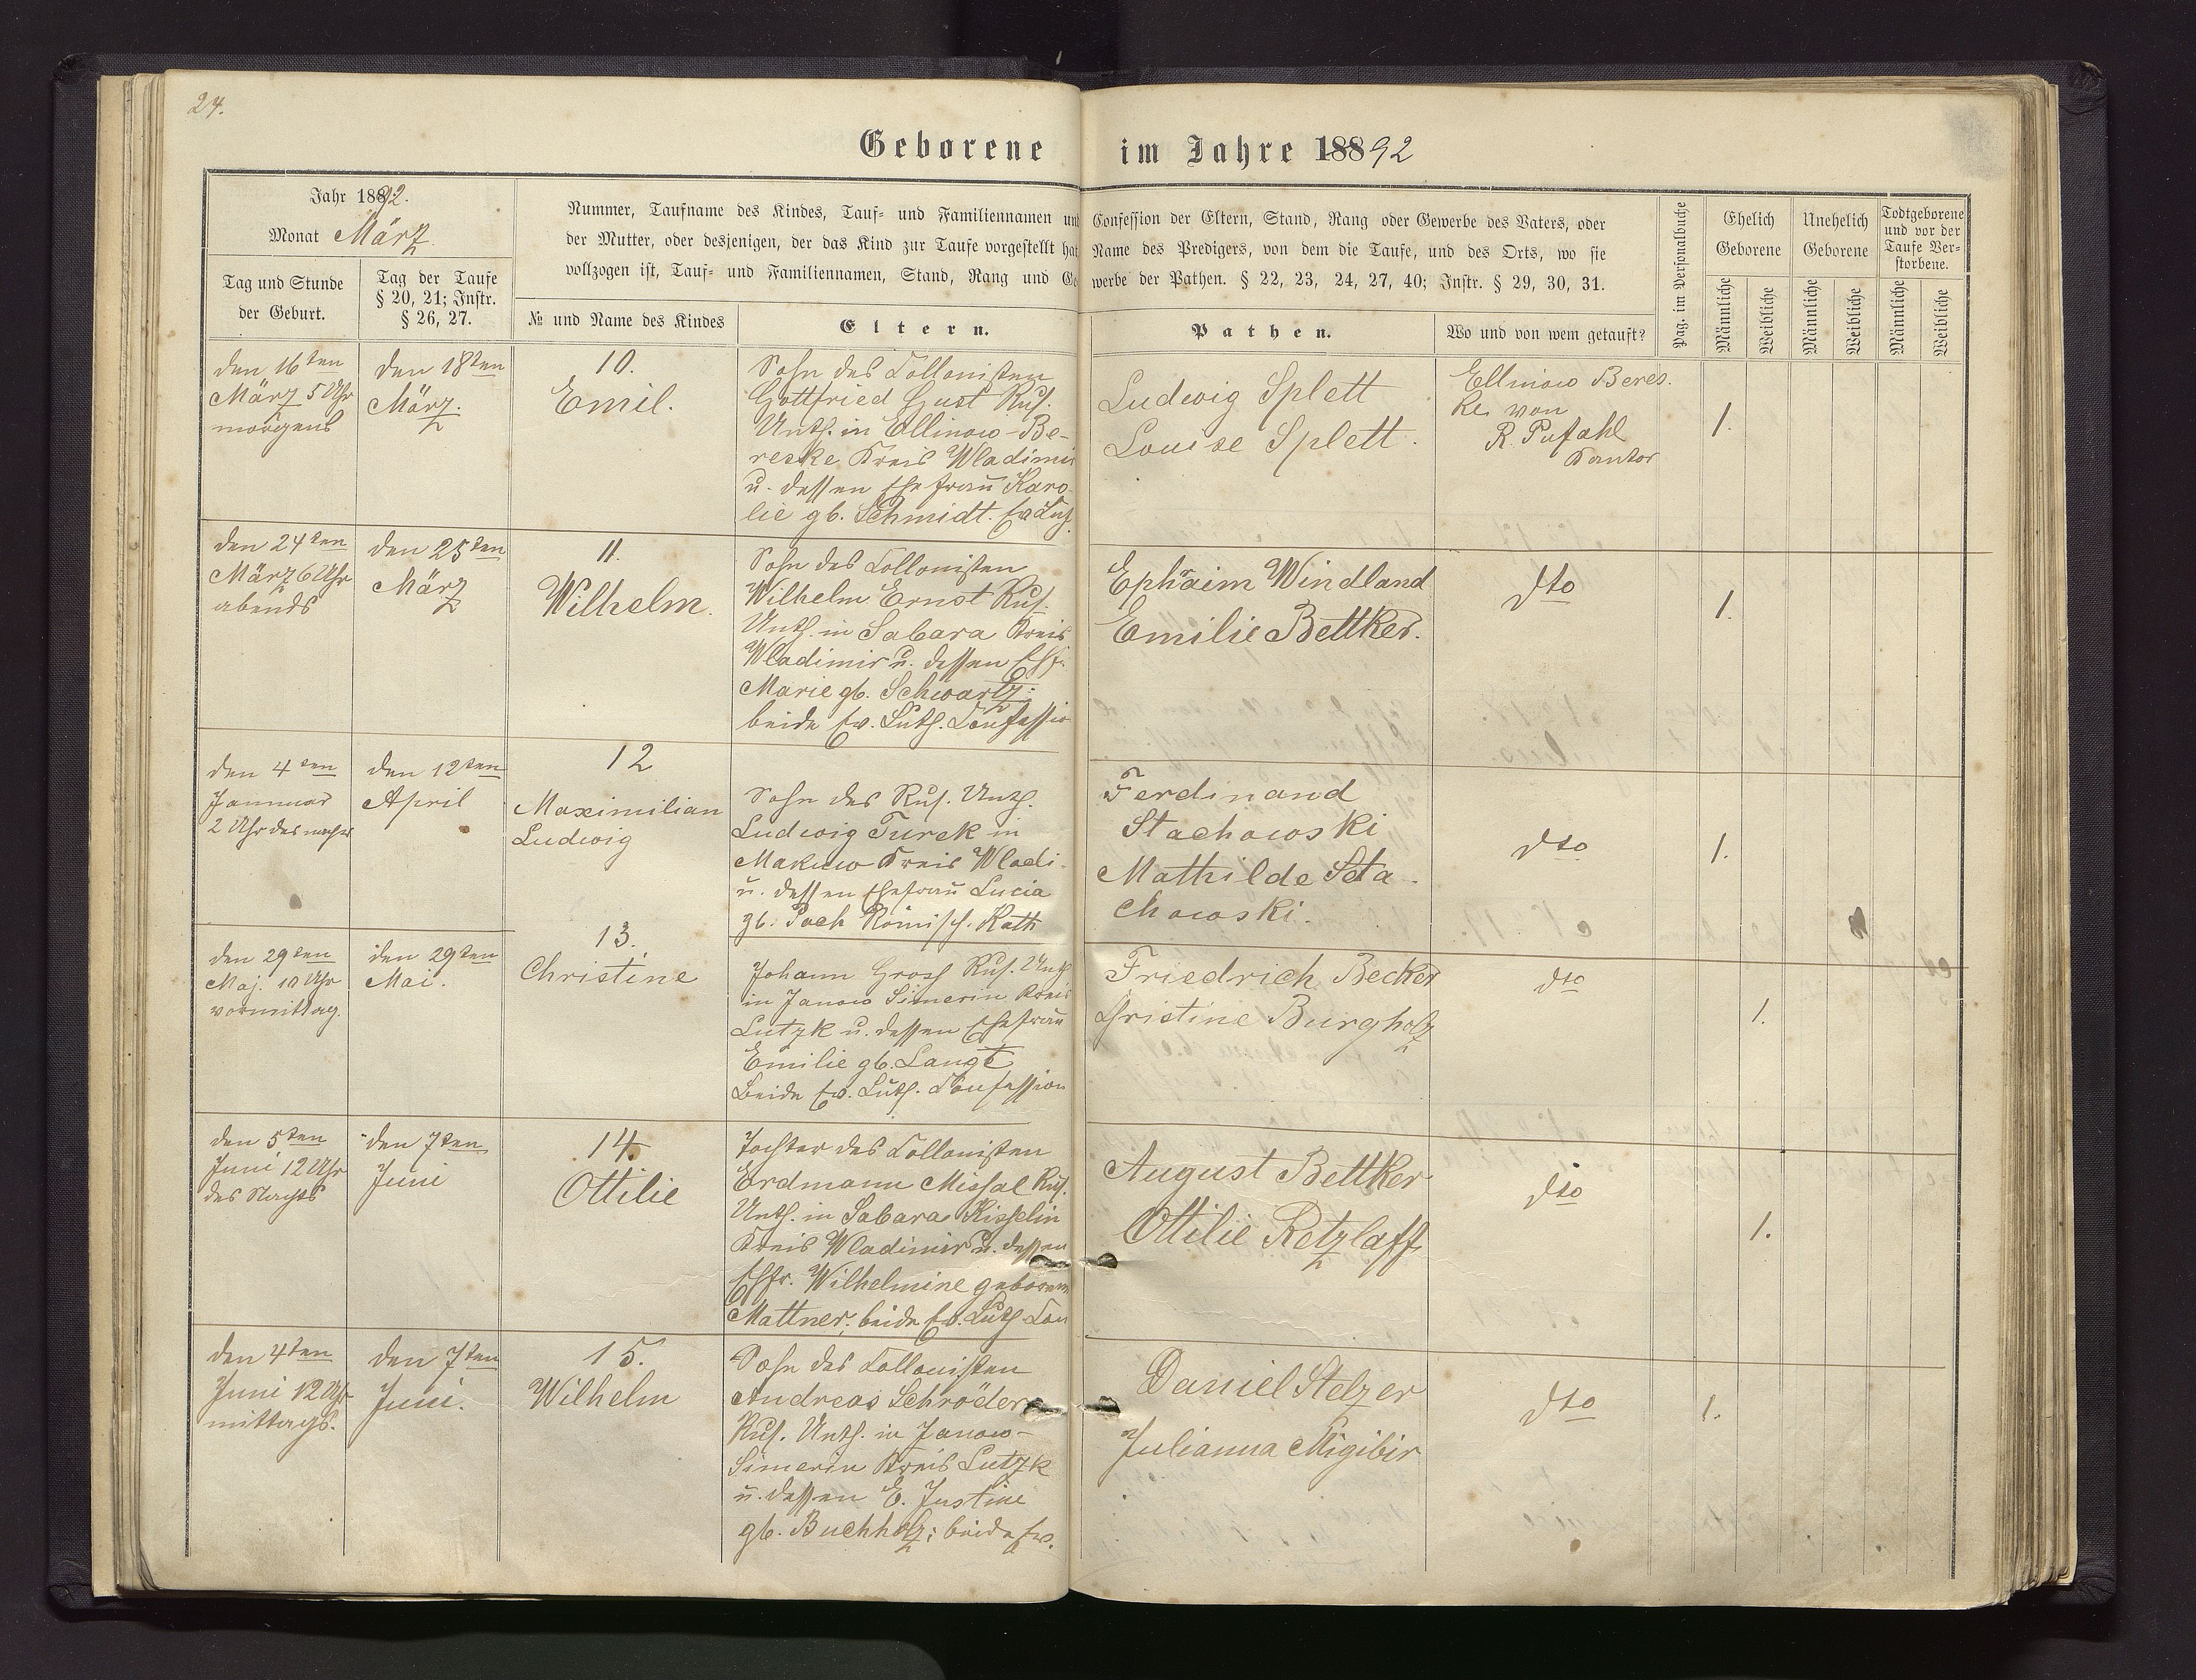 24.
Geborene im Jahre 18892
Jahr 18892.
Monat März.
Nummer, Taufname des Kindes, Tauf- und Familiennamen und
der Mutter, oder desjenigen, der das Kind zur Taufe vorgestellt hat,
vollzogen ist, Tauf- und Familiennamen, Stand, Rang und Ge-
Confession der Eltern, Stand, Rang oder Gewerbe des Vaters, oder
Name des Predigers, von dem die Taufe, und des Orts, wo sie
werbe der Pathen. § 22, 23, 24, 27, 40; Instr. § 29, 30, 31.
Tag und Stunde
der Geburt.
Tag der Taufe
§ 20, 21; Instr.
§ 26, 27.
№ und Name des Kindes
Eltern.
Pathen.
Wo und von wem getauft?
Pag. im Personalbuche
Ehelich
Geborene
Unehelich
Geborene
Todtgeborene
und vor der
Taufe Ver-
storbene.
Männliche
Weibliche
Männliche
Weibliche
Männliche
Weibliche
den 16ten
März 5 Uhr
morgens
den 18ten
März.
10.
Emil.
Sohn des Collonisten
Gottfried Gust Ruß.
Unth. in Ellinow-Be-
reske Kreis Wladimir
u. dessen Ehefrau Karo-
lie gb. Schmidt. Ev. Luth.
Ludwig Splett
Louise Splett.
Ellinow Beres.
ke. von
R. Pufahl
Kantor
1.
den 24ten
März 6 Uhr
abends
den 25ten
März
11.
Wilhelm.
Sohn des Collonisten
Wilhelm Ernst Ruß.
Unth. in Sabara Kreis
Wladimir u. dessen Ehf.
Marie gb. Schwartz:
beide Ev. Luth. Confessio
Ephraim Windland
Emilie Bettker.
dto
1.
den 4ten
Januar
2 Uhr des nachts
den 12ten
April
12
Maximilian
Ludwig
Sohn des Ruß. Unth.
Ludwig Turek in
Makuw Kreis Wladi-
u. dessen Ehefrau Lucia
gb. Pach Römisch. Kath
Ferdinand
Stachowski
Mathilde Sta-
chowski.
dto
1.
den 29ten
Maj. 10 Uhr
vormittag.
den 29ten
Mai.
13.
Christine
Johann Groß Ruß. Unth
in Janow Simerin Kreis
Lutzk u. dessen Ehefrau
Emilie gb. LangE
Beide Ev. Luth. Confession
Friedrich Becker
Christine Burgholz
dto
1.
den 5ten
Juni 12 Uhr
des Nachts
den 7ten
Juni
14.
Ottilie
Tochter des Collonisten
Erdmann Missal Ruß.
Unth. in Sabara Kisselin
Kreis Wladimir u. dessen
Ehfr. Wilhelmine geborene
Mattner, beide Ev. Luth. Con
August Bettker
Ottilie Retzlaff
dto
1.
den 4ten
Juni 12 Uhr
mittags.
den 7ten
Juni.
15.
Wilhelm
Sohn des Collonisten
Andreas Schröder
Ruß. Unth. in Janow-
Simerin Kreis Lutzk
u. dessen E. Justine
gb. Buchholz; beide Ev.
Daniel Stelzer
Julianna Migibir
dto
1.